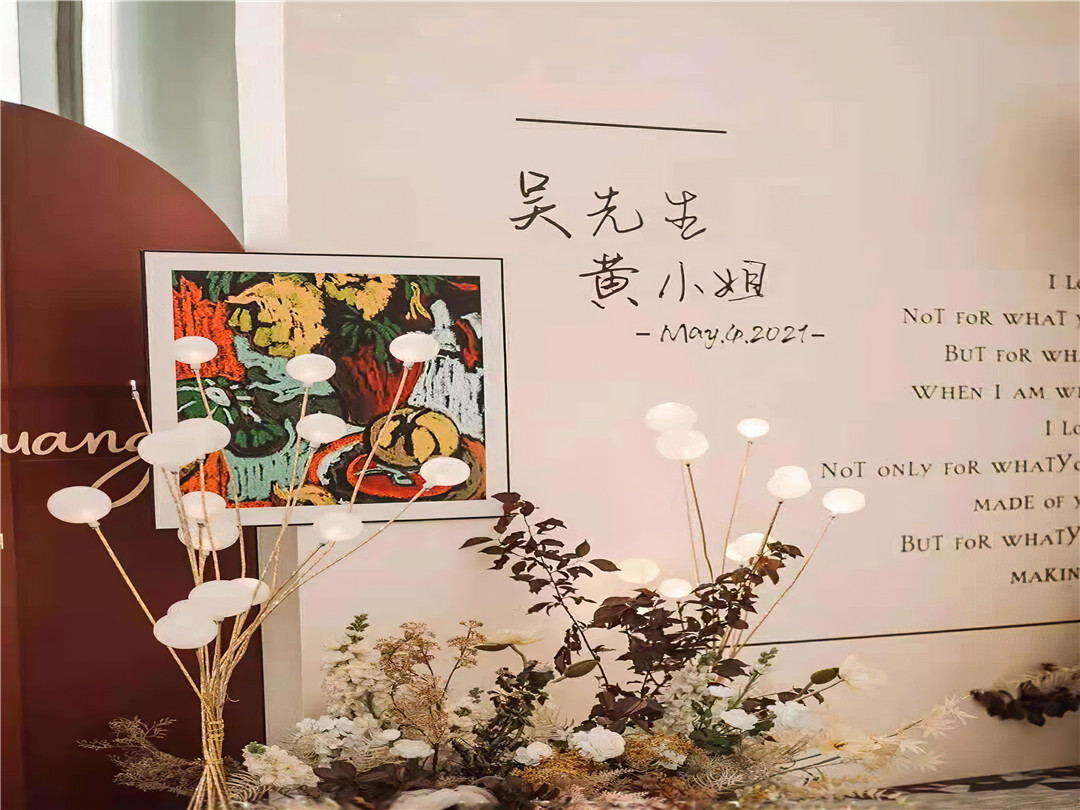 uang
吴先生
黄小姐
-May.4.2021-
I Lo
NOT FOR WHAT Y
BUT FOR WHA
WHEN I AM WI
I LO
NOT ONLY FOR WHATYO
MADE OF Y
BUT FOR WHATY
MAKIN